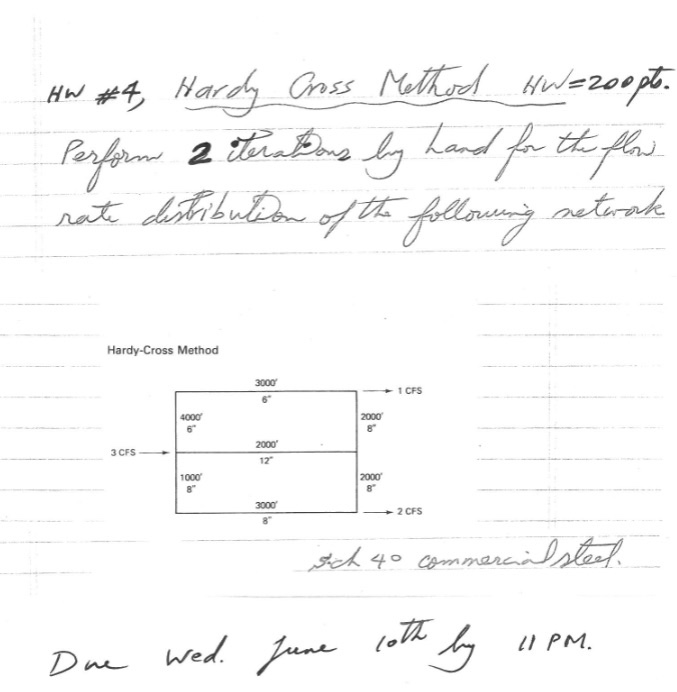 HW #4, Hardy Cross Method HW=200pts.
Perform 2 iterations by hand for the flow
rate distribution of the following network
Hardy-Cross Method
3000'
6"
1 CFS
4000'
6"
2000'
8"
3 CFS
2000'
12"
1000'
8"
2000'
8"
3000'
8"
2 CFS
sch 40 commercial steel.
Due Wed. June 10th by 11 PM.